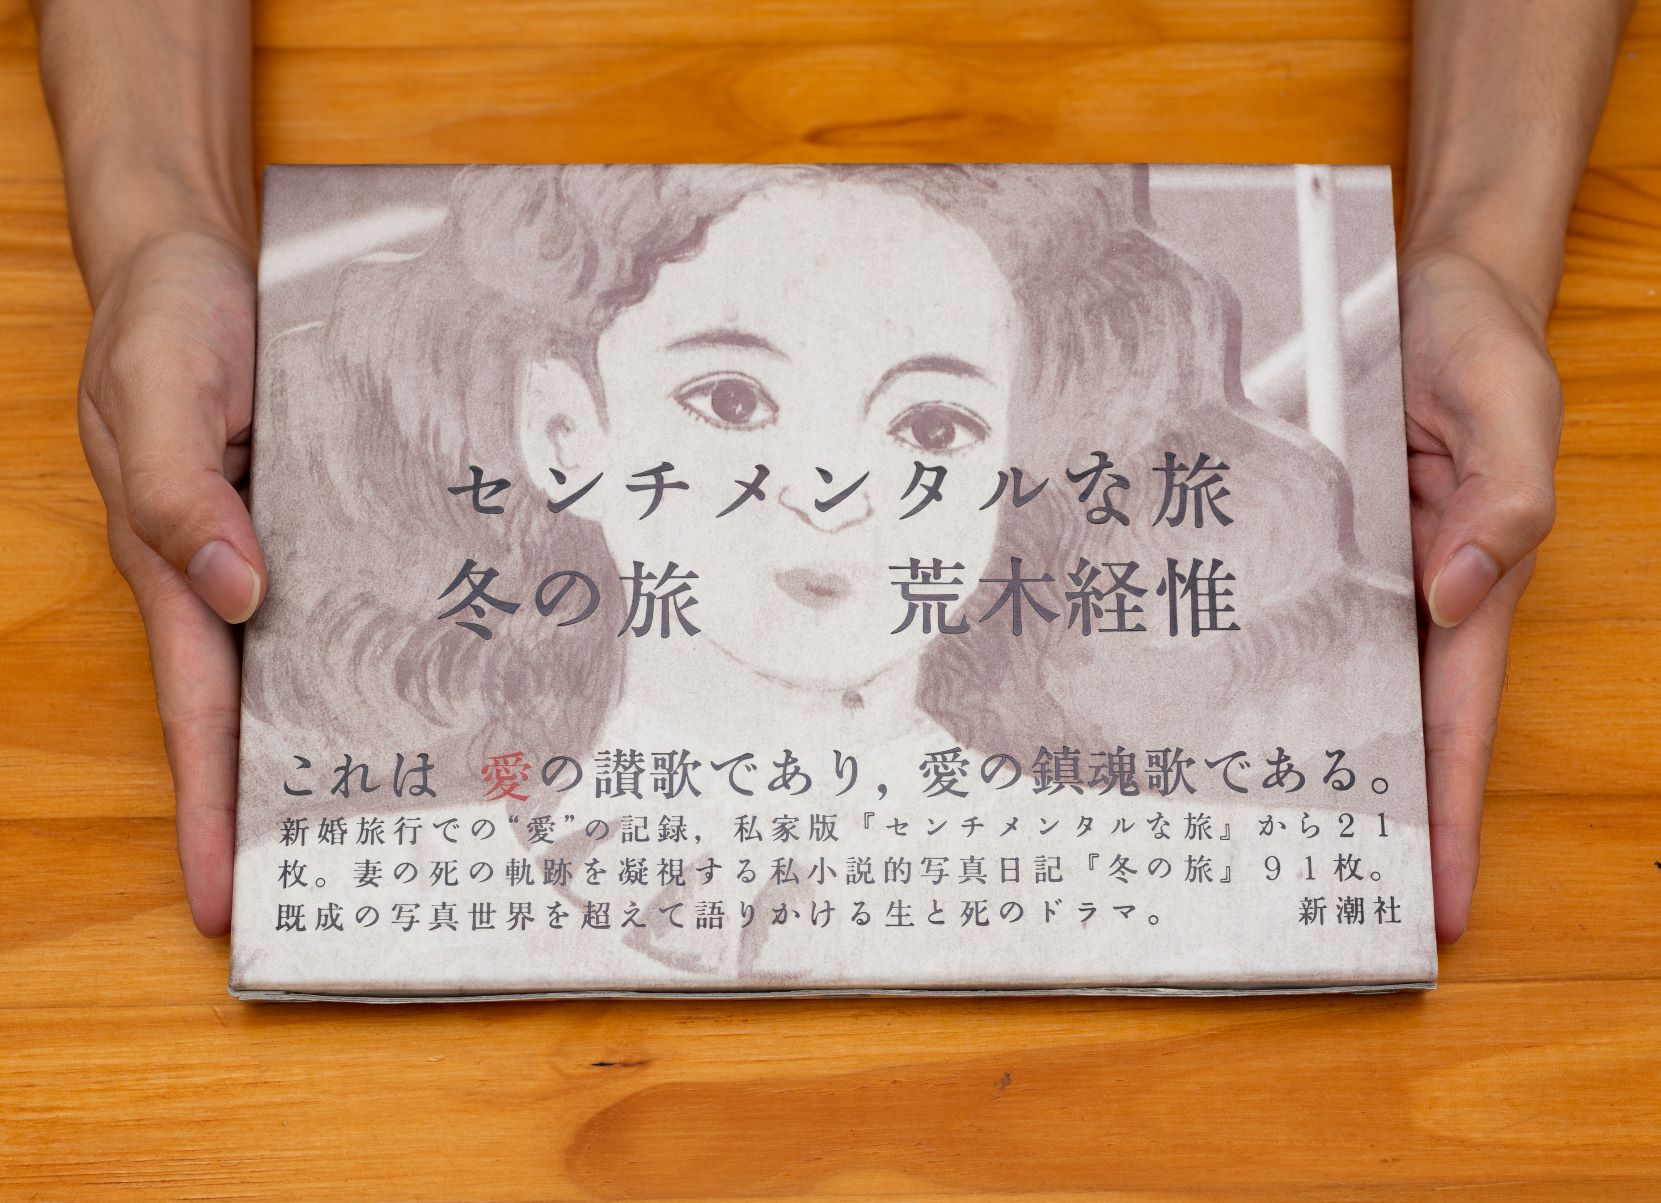 センチメンタルな旅
冬の旅　荒木経惟
これは 愛の讃歌であり，愛の鎮魂歌である。
新婚旅行での“愛”の記録，私家版『センチメンタルな旅』から２１
枚。妻の死の軌跡を凝視する私小説的写真日記『冬の旅』９１枚。
既成の写真世界を超えて語りかける生と死のドラマ。　新潮社